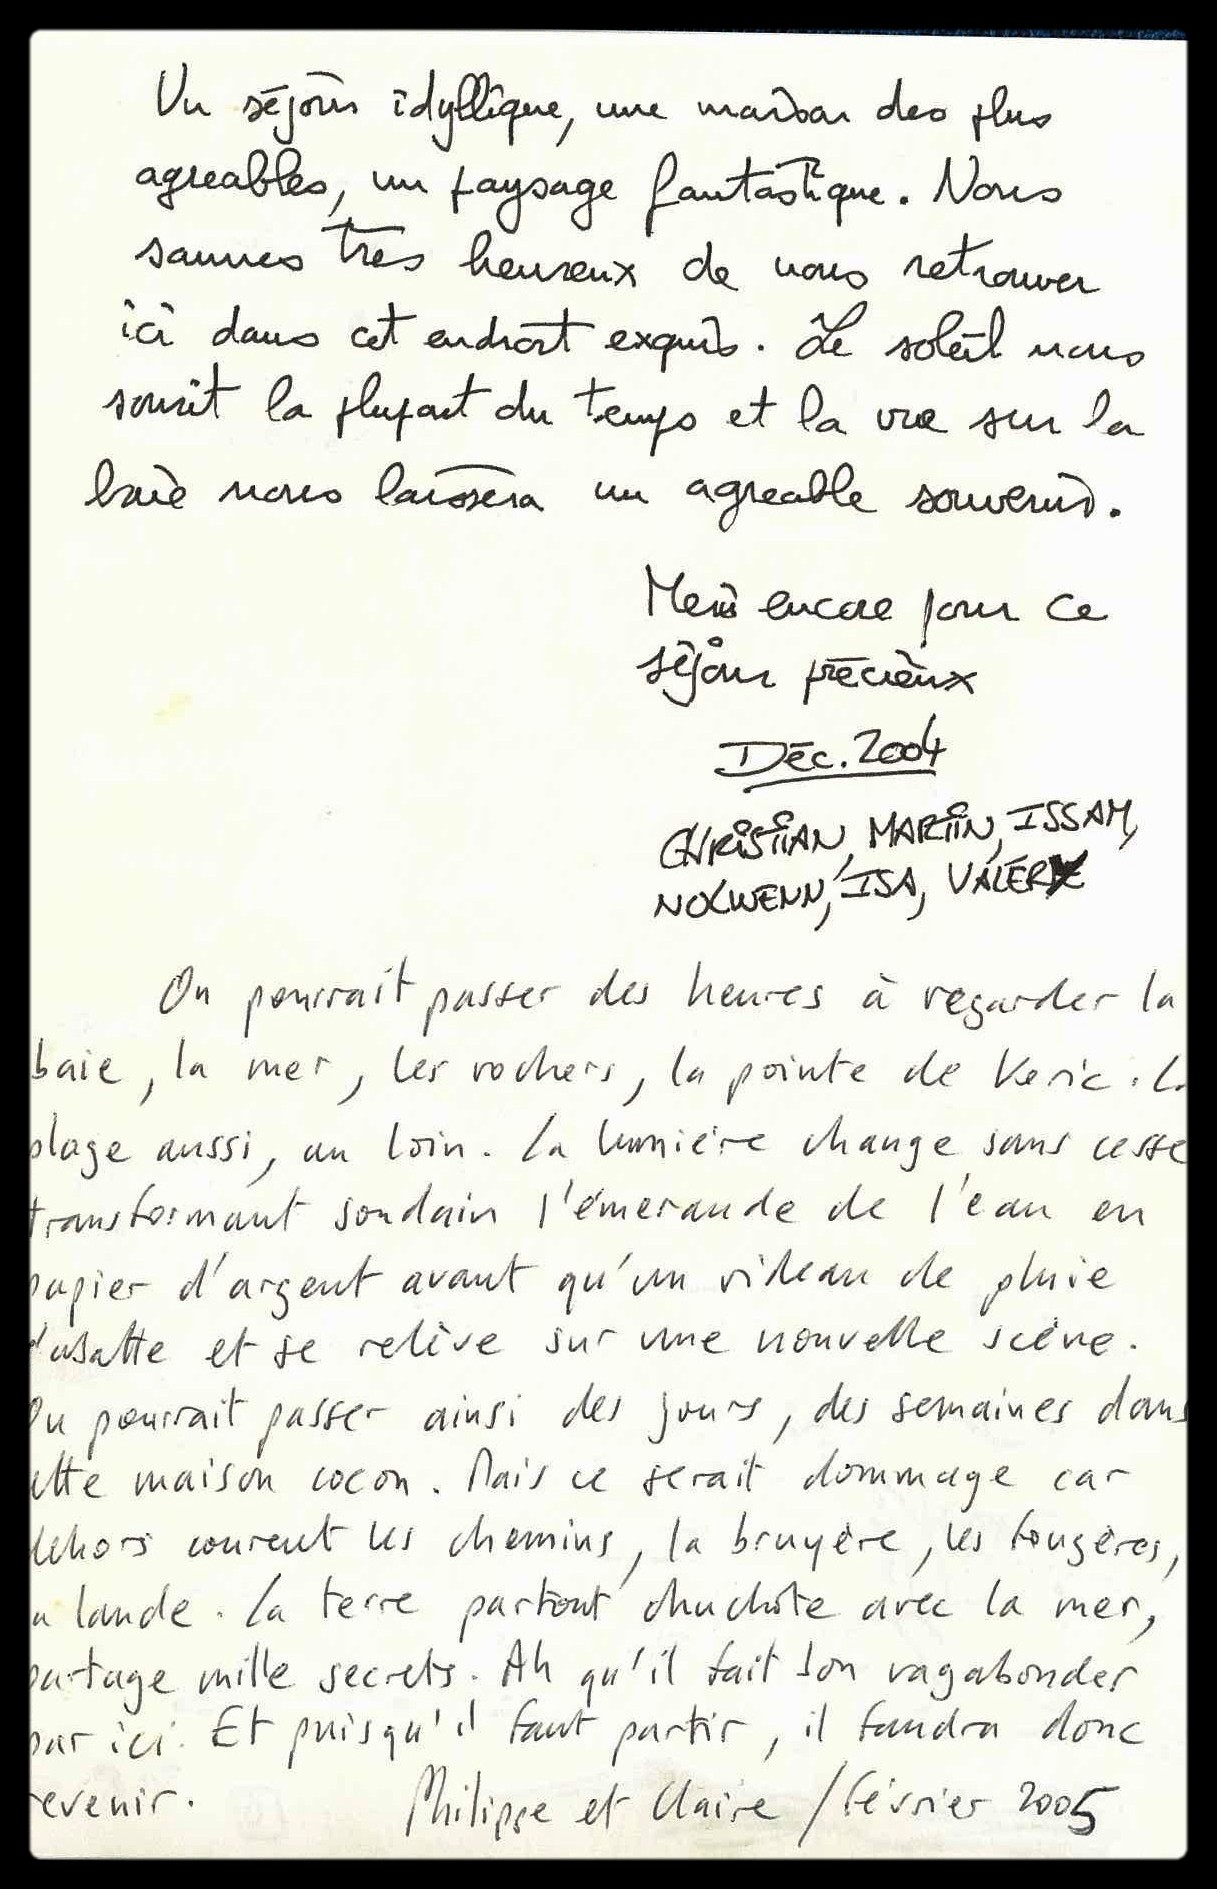 Un séjour idyllique, une maison des plus
agreables, un paysage fantastique. Nous
sommes très heureux de nous retrouver
ici dans cet endroit exquis. Le soleil nous
sourit la plupart du temps et la vue sur la
baie nous laissera un agreable souvenir.
Merci encore pour ce
séjour précieux
Déc. 2004
CHRISTIAN, MARTIN, ISSAM,
NOLWENN, ISA, VALÉRY
On pourrait passer des heures à regarder la
baie, la mer, les rochers, la pointe de Keric. L
plage aussi, au loin. La lumière change sans cesse
transformant soudain l'émeraude de l'eau en
papier d'argent avant qu'un rideau de pluie
s'abatte et se relève sur une nouvelle scène.
On pourrait passer ainsi des jours, des semaines dans
cette maison cocon. Mais ce serait dommage car
dehors courent les chemins, la bruyère, les fougères,
la lande. La terre partout chuchote avec la mer,
partage mille secrets. Ah qu'il fait bon vagabonder
par ici. Et puisqu'il faut partir, il faudra donc
revenir. Philippe et Claire / février 2005